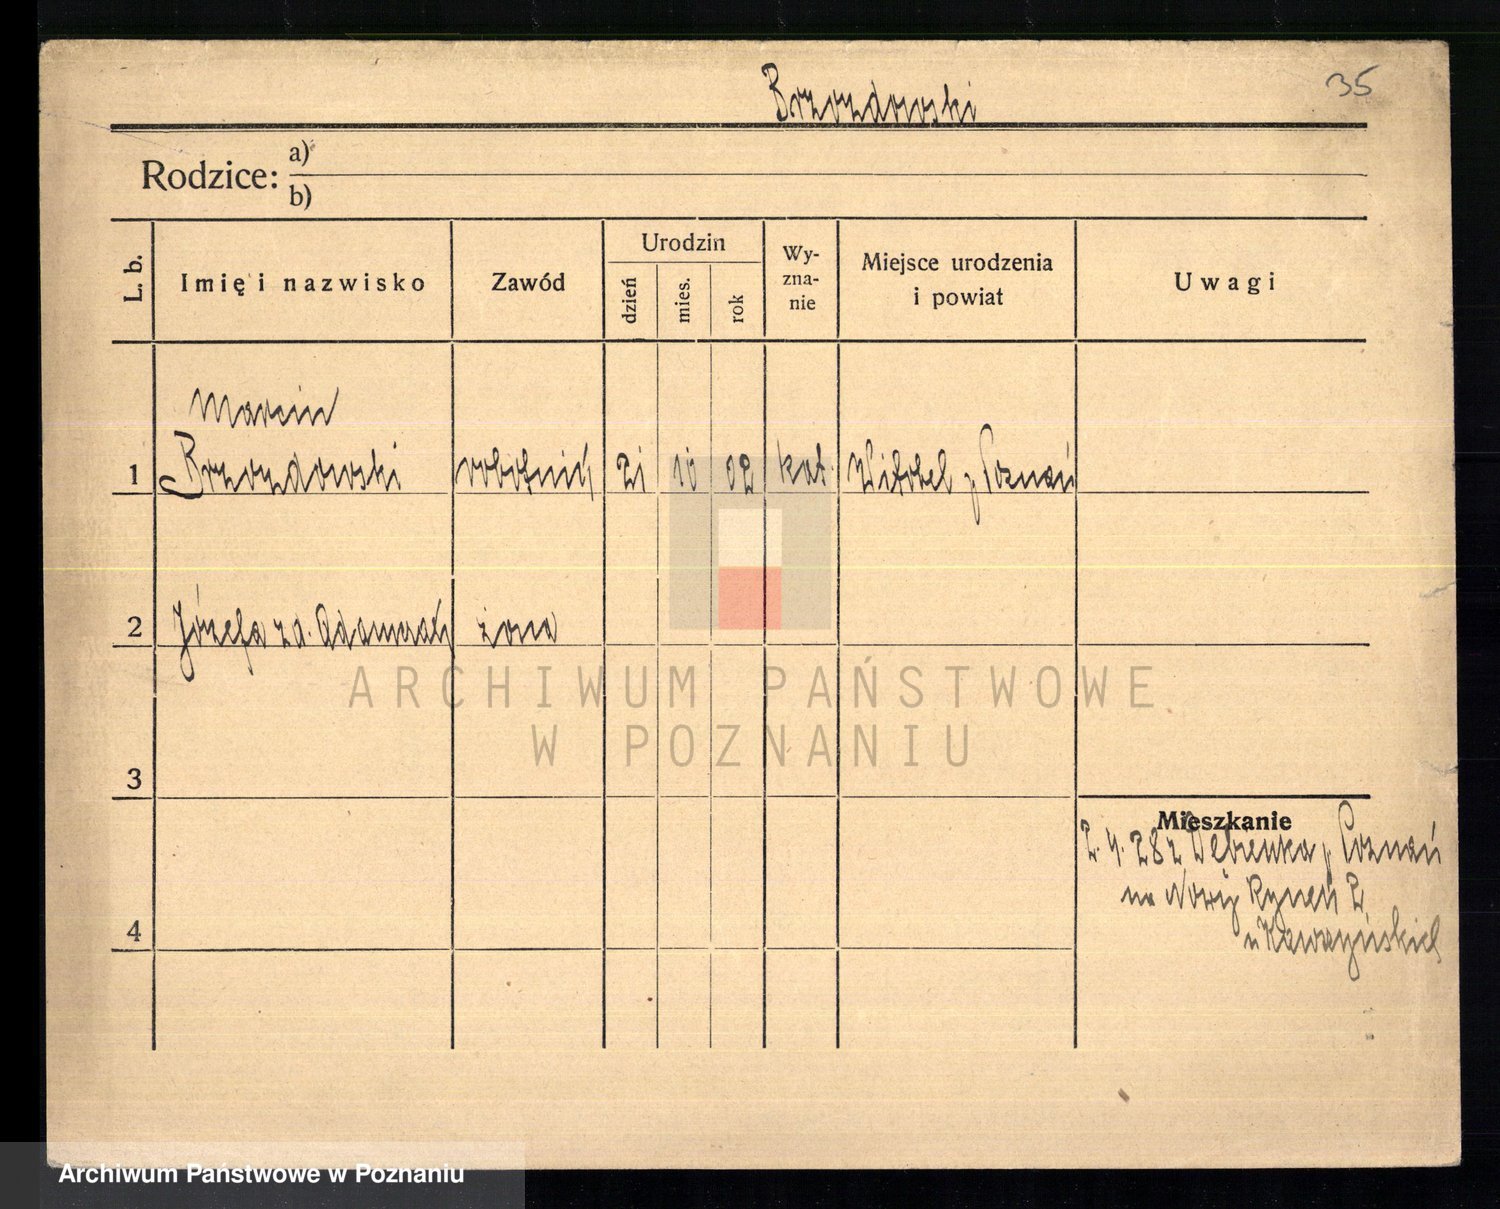 35
Brzozdowski
Rodzice: a)
b)
L. b.
Imię i nazwisko
Zawód
Urodzin
dzień
mies.
rok
Wy-
zna-
nie
Miejsce urodzenia
i powiat
Uwagi
Marcin
1 Brzozdowski robotnik 21 10 02 kat. Witobel p Poznań
2 Józefa zd. Adamczak żona
3
4
Mieszkanie
2. 4. 28 z Dębienka p Poznań
na Nowy Rynek 2
u
ARCHIWUM PAŃSTWOWE
W POZNANIU
Archiwum Państwowe w Poznaniu